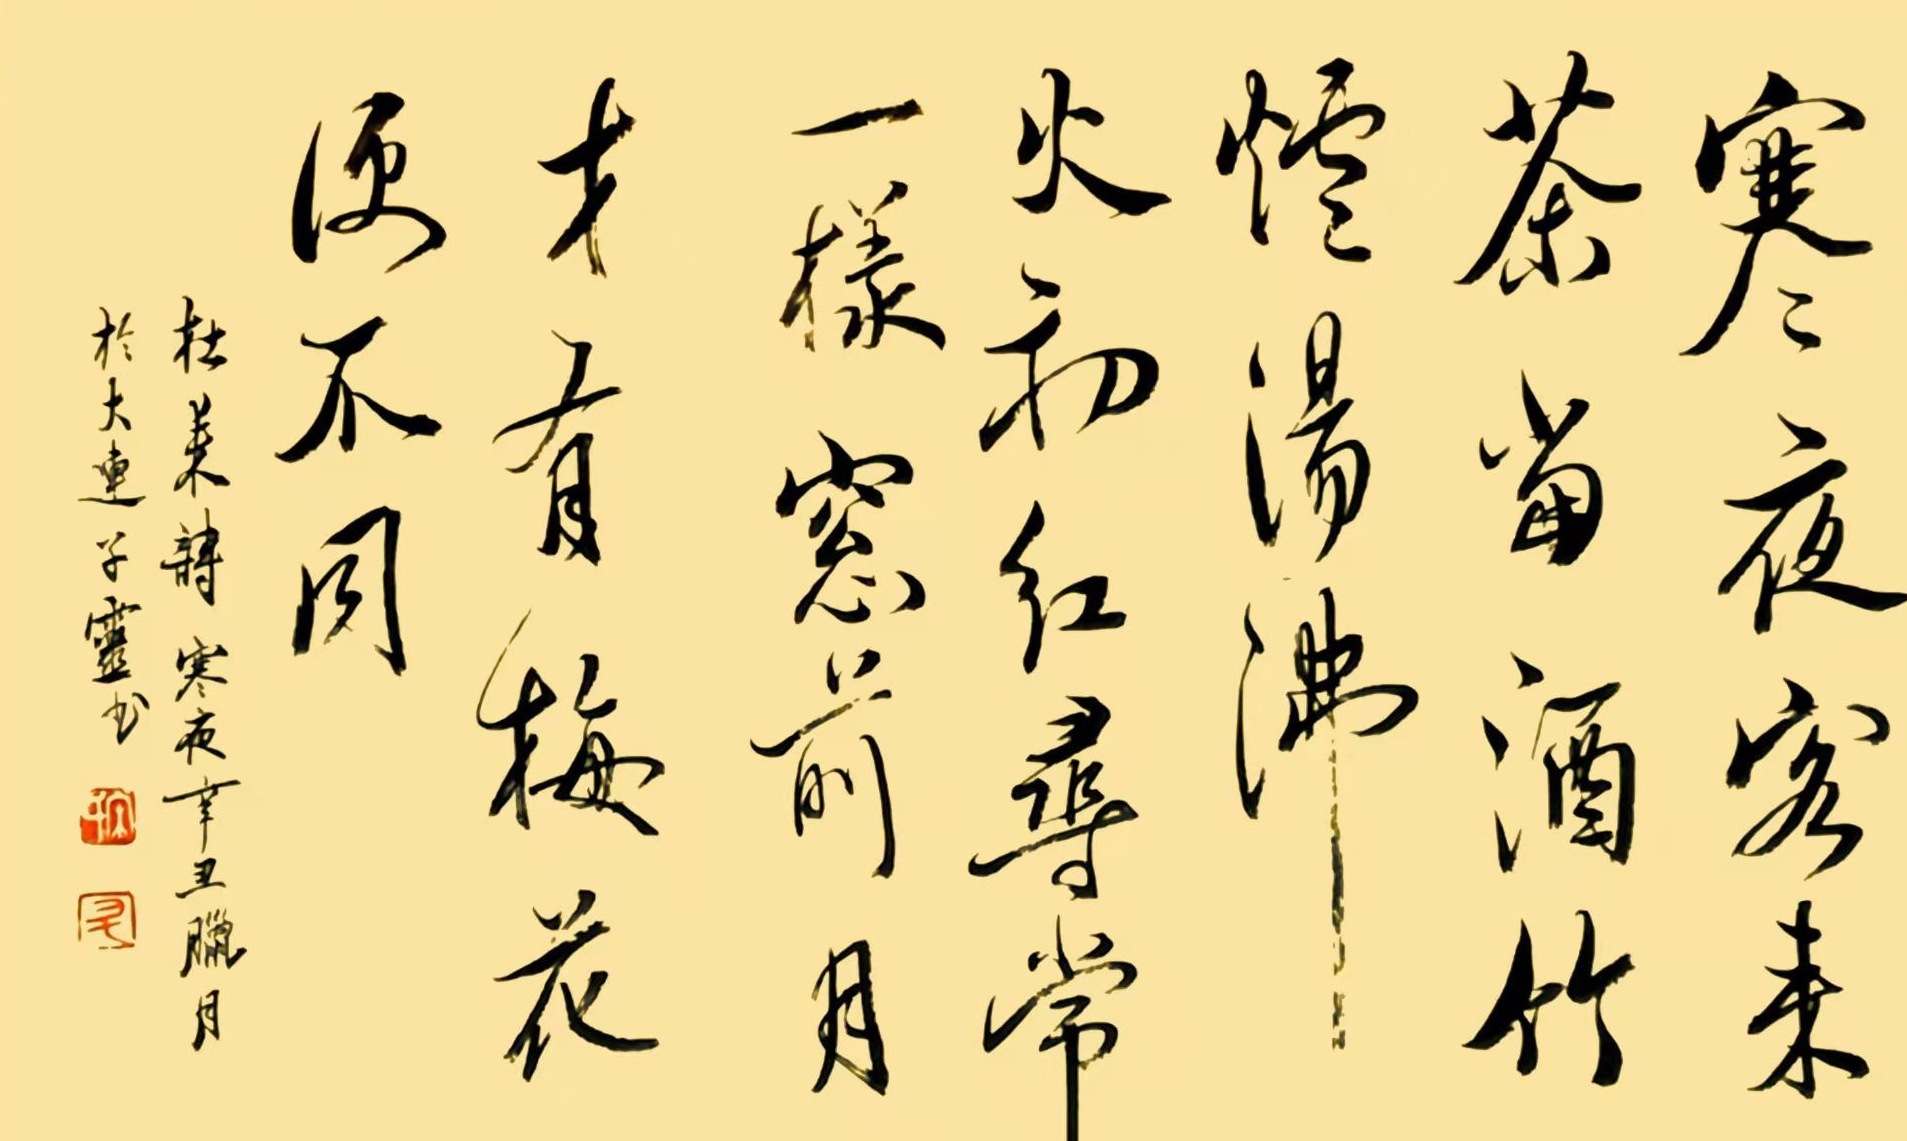 寒夜客来
茶當酒竹
爐湯沸
火初红尋常
一樣窓前月
才有梅花
便不同
杜耒詩寒夜辛丑臘月
於大連子靈书